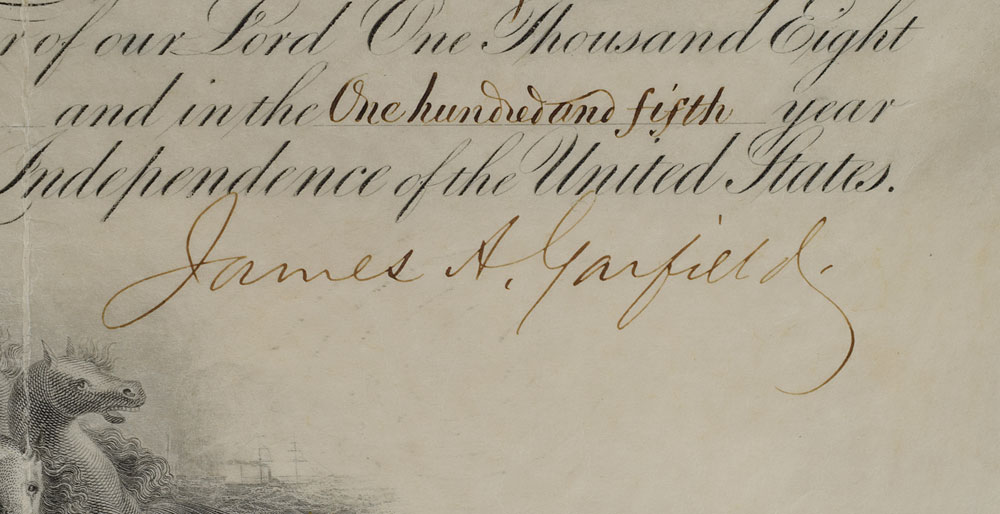 r of our Lord One Thousand Eight
and in the One hundred and fifth year
Independence of the United States.
James A. Garfield.